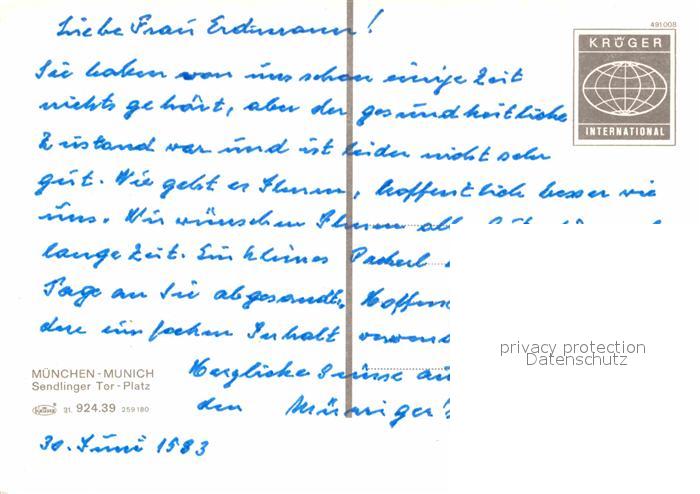 491008
KRÜGER
INTERNATIONAL
Liebe Frau Erdmann!
Sie haben von uns schon einige Zeit
nichts gehört, aber der gesundheitliche
Zustand war und ist leider nicht sehr
gut. Wie geht es Ihnen, hoffentlich besser wie
uns. Wir wünschen Ihnen alles
lange Zeit. Ein kleines Packerl
Tage an Sie abgesandt. Hoffen
einfachen Inhalt
Herzliche Grüsse aus
den Münniger
30. Juni 1983
MÜNCHEN - MUNICH
Sendlinger Tor - Platz
KRÜGER 21. 924.39 259180
privacy protection
Datenschutz